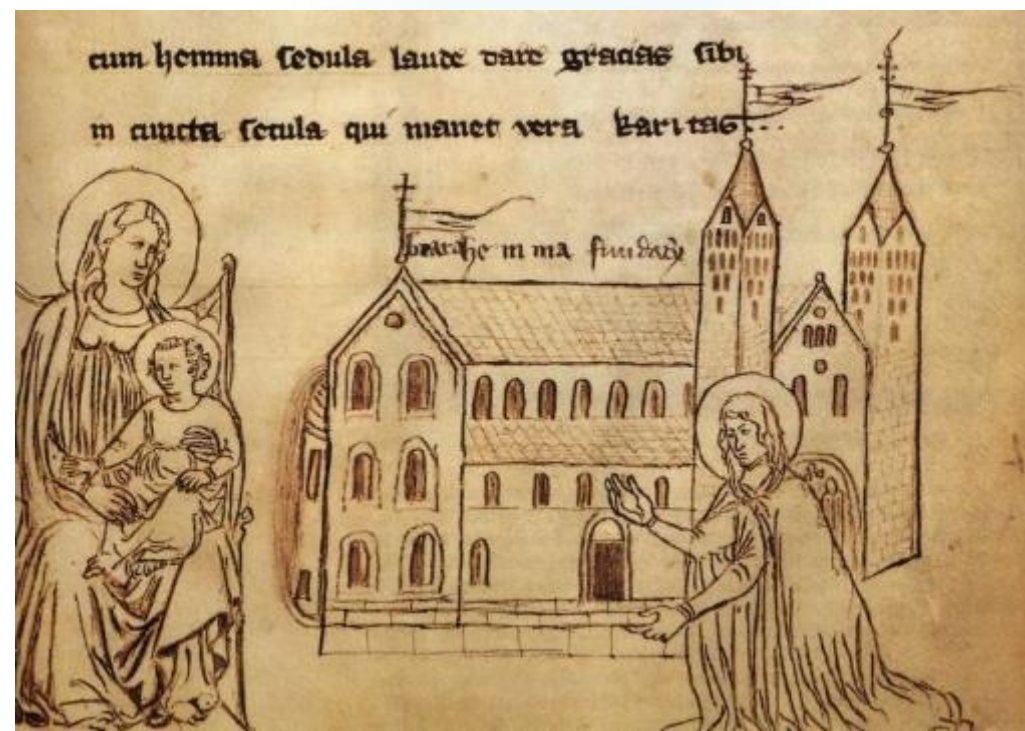 cum hemma sedula laude dare gracias sibi
in cuncta secula qui manet vera karitas...
beata he m ma fundat